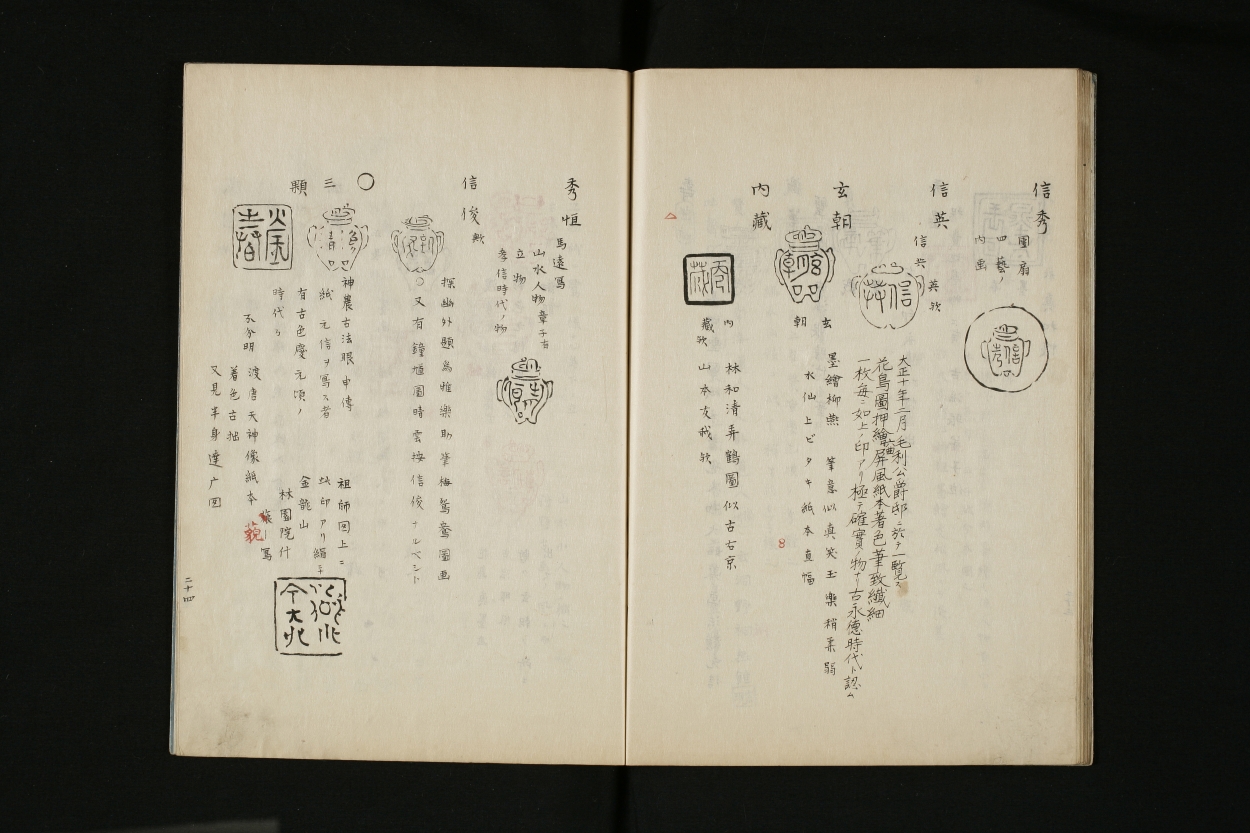 信秀
圖扇
四藝ノ
内画
信英
信英
英欤
大正十年二月毛利公爵邸ニ於テ一覽ス
花鳥圖押繪六曲屏風紙本著色筆致纖細
一枚每ニ如上ノ印アリ極テ確實ノ物ナリ古永德時代ト認ム
玄朝
玄
朝
墨繪柳燕 筆意似眞笑玉樂稍柔弱
水仙上ビタキ紙本直幅
内藏
内
藏欤
林和清弄鶴圖似古右京
山本友我欤
8
秀恒
馬遠寫
山水人物章子右
立物
孝信時代ノ物
信俊
欤
探幽外題爲雅樂助筆梅鴛鴦圖画
〇又有鐘馗圖晴雲按信俊ナルベシト
〇
三
顯
神農古法眼中傳
紙 元信ヲ寫ス者
有古色慶元頃ノ
時代ゟ
不分明
祖師図上ニ
此印アリ絹本
金龍山
林園院什
渡唐天神像紙本
着色古拙
又見半身達广図
二十四